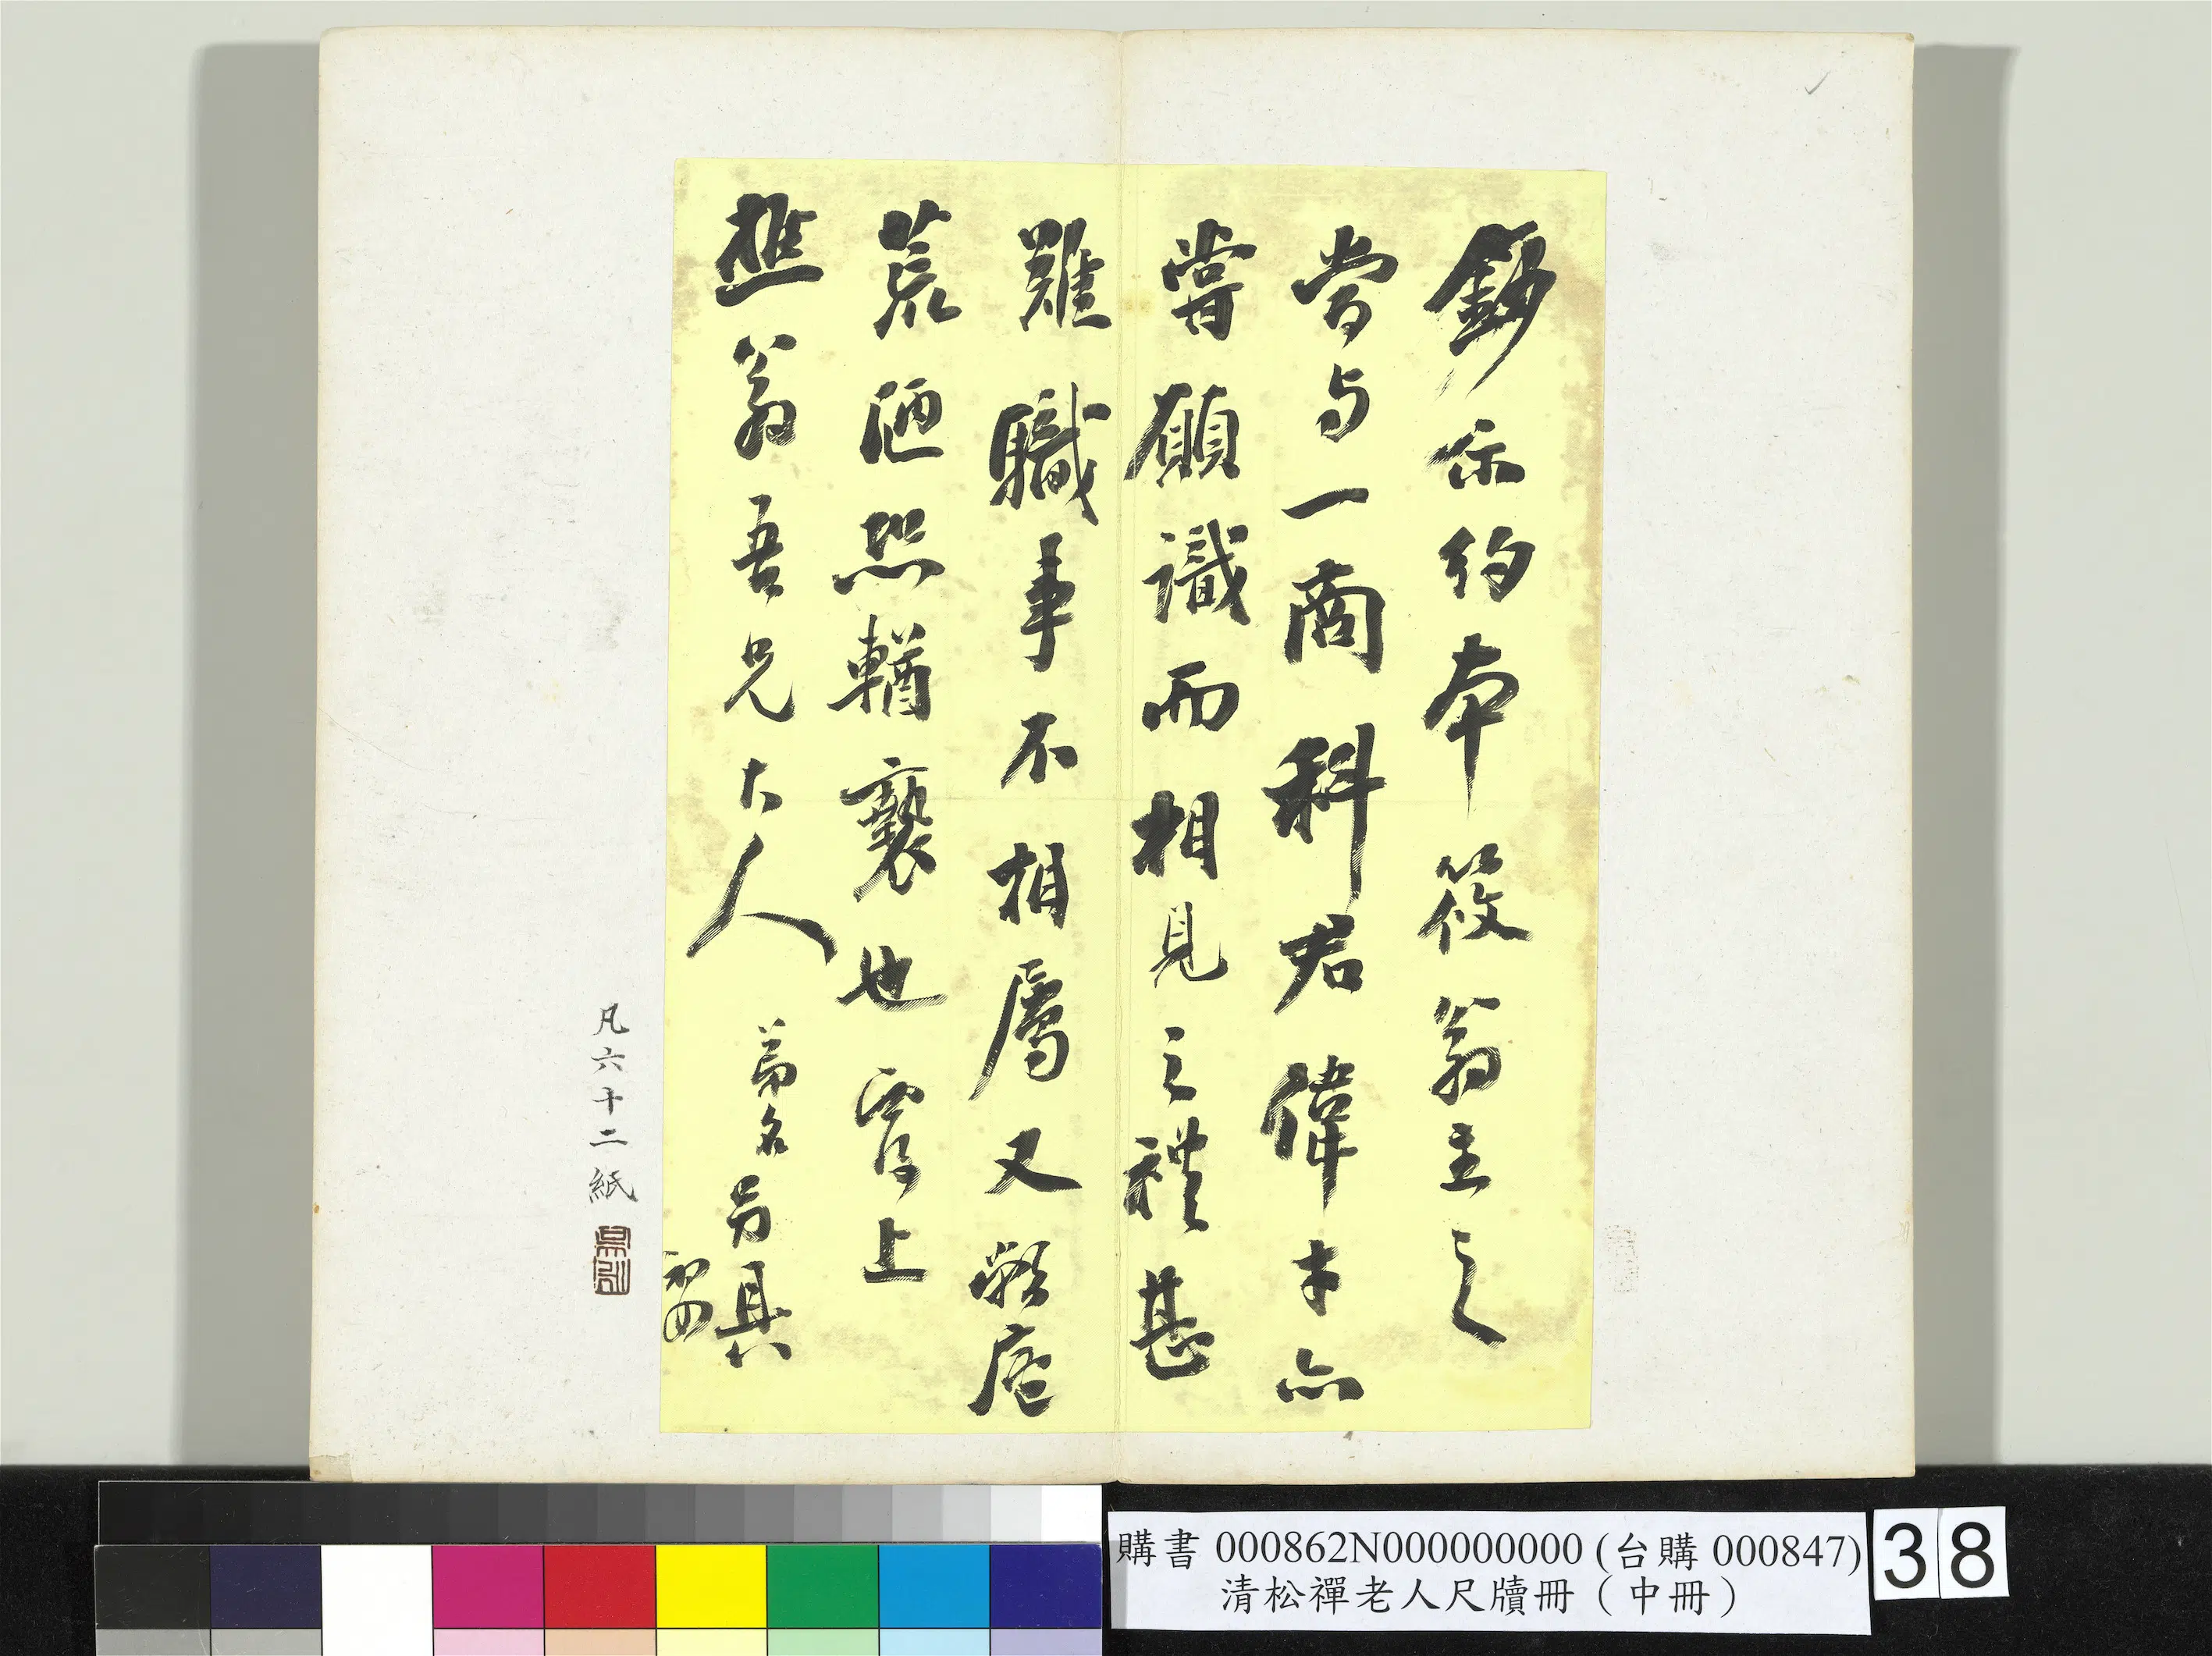 鈔示約本筱翁主之
當与一商科君偉才亦
嘗願識而相見之禮甚
難職事不相屬又嬾庵
荒陋恐輶褻也 覆上
樵翁吾兄大人 弟名另具
初四
凡六十二紙
購書 000862N000000000 (台購 000847)
清松禪老人尺牘冊（中冊）
38